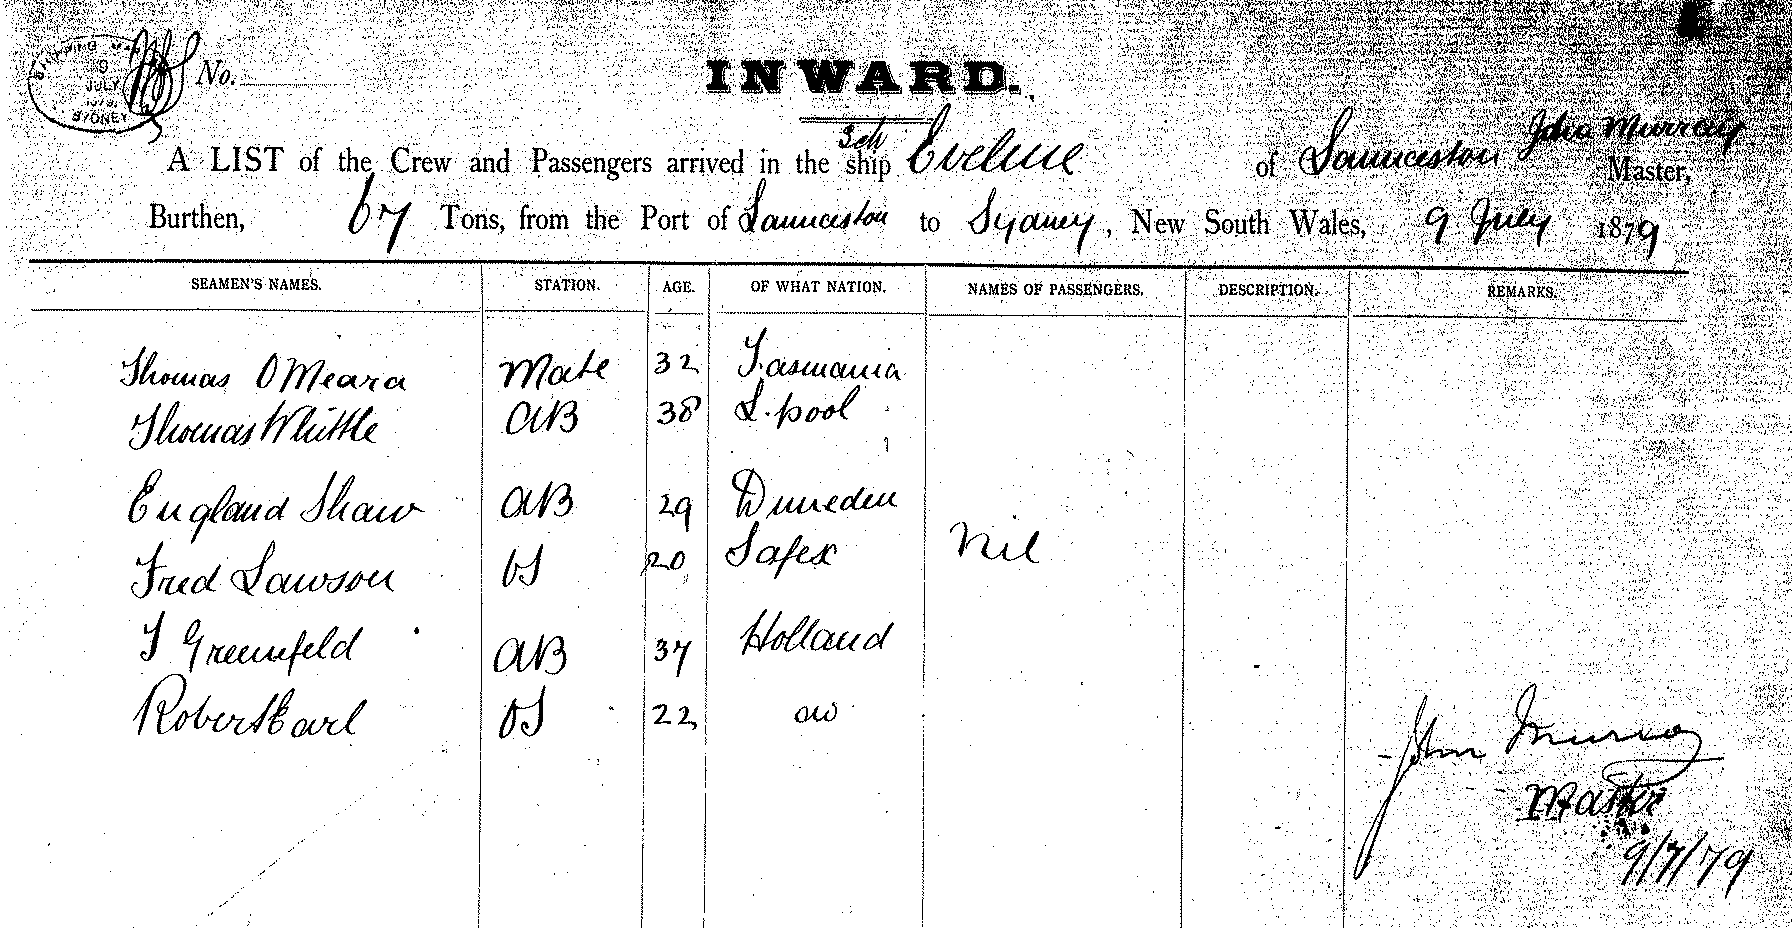 SHIPPING MA
9
JULY
1879
SYDNEY
No.
INWARD.
Sch John Murray
A LIST of the Crew and Passengers arrived in the ship Eveline of Launceston Master,
Burthen, 67 Tons, from the Port of Launceston to Sydney, New South Wales, 9 July 1879
SEAMEN'S NAMES. STATION. AGE. OF WHAT NATION. NAMES OF PASSENGERS. DESCRIPTION. REMARKS.
Thomas OMeara Mate 32 Tasmania
Thomas Whittle AB 38 L.pool
England Shaw AB 29 Duneden
Fred Lawson OS 20 Nil
Greenfeld AB 37 Holland
Robert Earl OS 22
John Murray
Master
9/7/79